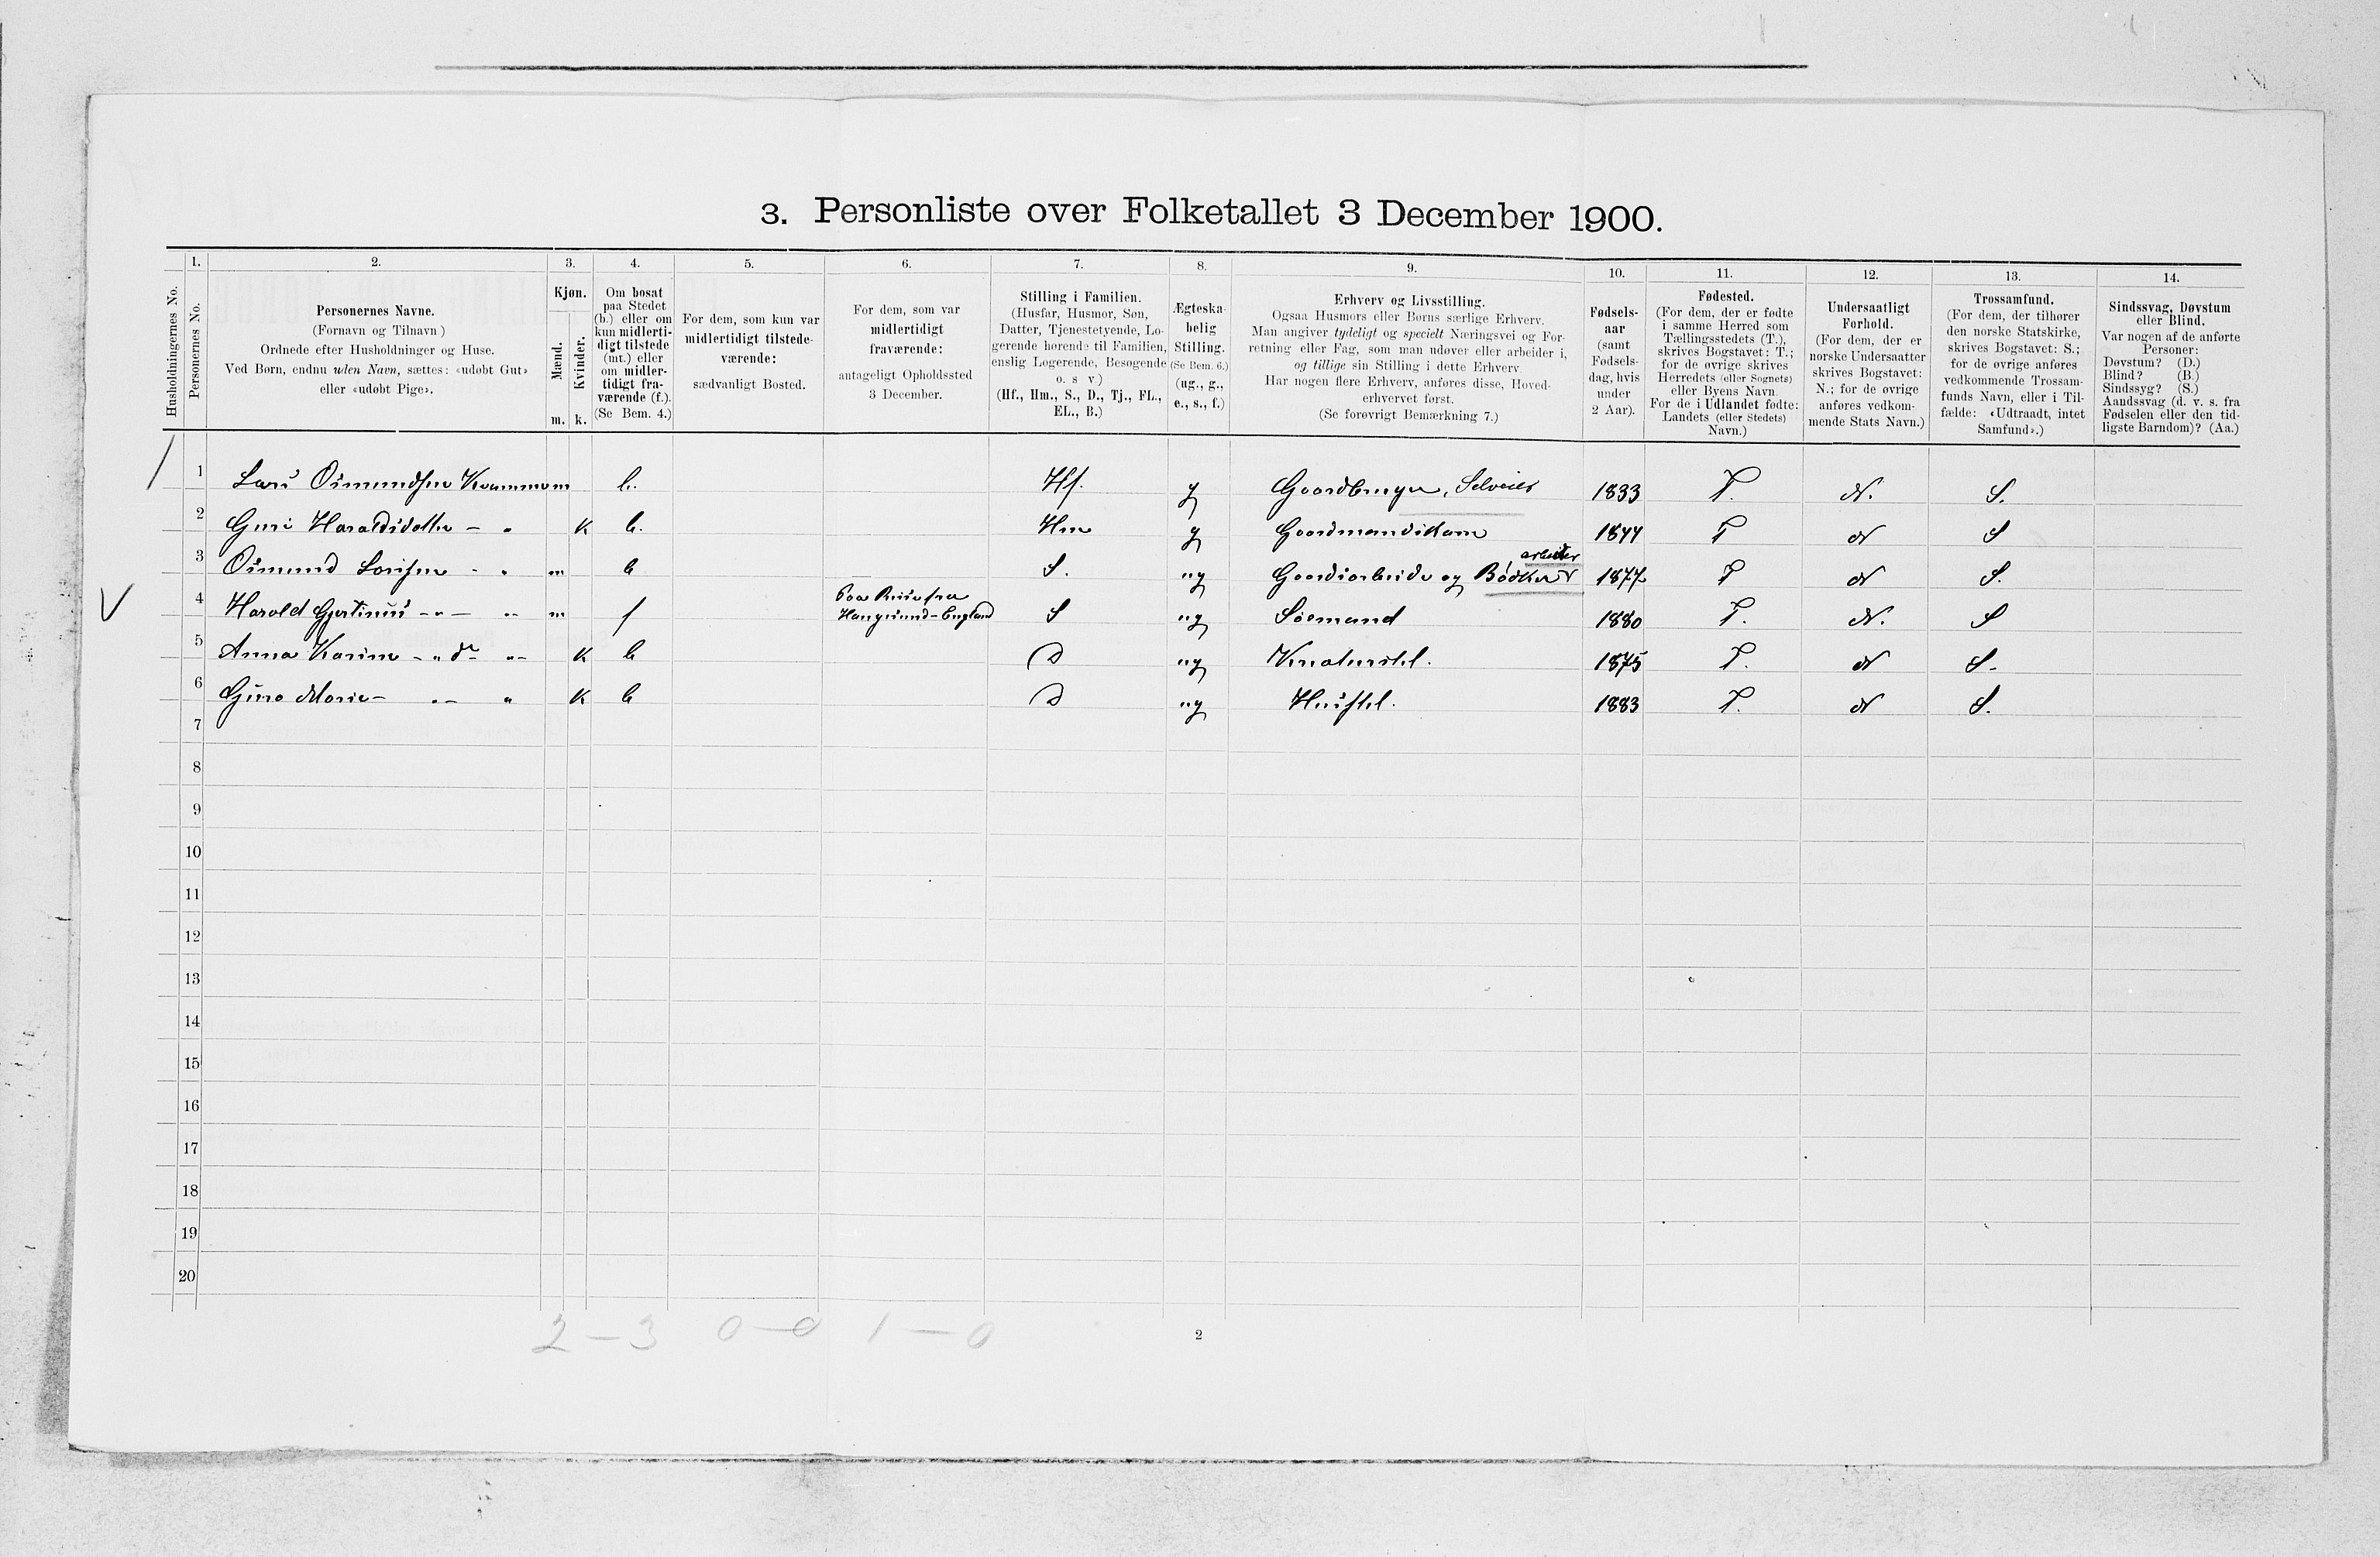 3. Personliste over Folketallet 3 December 1900.
1. 2. 3. 4. 5. 6. 7. 8. 9. 10. 11. 12. 13. 14.
Husholdningernes No.
Personernes No.
Personernes Navne.
(Fornavn og Tilnavn)
Ordnede efter Husholdninger og Huse.
Ved Børn, endnu uden Navn, sættes: «udøbt Gut»
eller «udøbt Pige».
Kjøn.
Mænd.
Kvinder.
m. k.
Om bosat
paa Stedet
(b.) eller om
kun midlerti-
digt tilstede
(mt.) eller
om midler-
tidigt fra-
værende (f.).
(Se Bem. 4.)
For dem, som kun var
midlertidigt tilstede-
værende:
sædvanligt Bosted.
For dem, som var
midlertidigt
fraværende:
antageligt Opholdssted
3 December.
Stilling i Familien.
(Husfar, Husmor, Søn,
Datter, Tjenestetyende, Lo-
gerende hørende til Familien,
enslig Logerende, Besøgende
o. s v)
(Hf., Hm., S., D., Tj., FL.,
EL., B.)
Ægteska-
belig
Stilling.
(Se Bem. 6.)
(ug., g.,
e., s., f.)
Erhverv og Livsstilling.
Ogsaa Husmors eller Børns særlige Erhverv.
Man angiver tydeligt og specielt Næringsvei og For-
retning eller Fag, som man udøver eller arbeider i,
og tillige sin Stilling i dette Erhverv.
Har nogen flere Erhverv, anføres disse, Hoved-
erhvervet først.
(Se forøvrigt Bemærkning 7.)
Fødsels-
aar
(samt
Fødsels-
dag, hvis
under
2 Aar).
Fødested.
(For dem, der er fødte
i samme Herred som
Tællingsstedets (T.),
skrives Bogstavet: T.;
for de øvrige skrives
Herredets (eller Sognets)
eller Byens Navn.
For de i Udlandet fødte:
Landets (eller Stedets)
Navn.)
Undersaatligt
Forhold.
(For dem, der er
norske Undersaatter
skrives Bogstavet:
N.; for de øvrige
anføres vedkom-
mende Stats Navn.)
Trossamfund.
(For dem, der tilhører
den norske Statskirke,
skrives Bogstavet: S.;
for de øvrige anføres
vedkommende Trossam-
funds Navn, eller i Til-
fælde: «Udtraadt, intet
Samfund».)
Sindssvag, Døvstum
eller Blind.
Var nogen af de anførte
Personer:
Døvstum? (D.)
Blind? (B.)
Sindssyg? (S.)
Aandssvag (d. v. s. fra
Fødselen eller den tid-
ligste Barndom)? (Aa.)
1 Lars Osmundsen Kvammen m b. Hf. g Gaardbruger, Selveier 1833 T. N. S.
2 Guri Haraldsdatter – " k b. Hm g Gaardmandskone 1844 T N S
arbeider
3 Osmund Larssen - " m b S. ug Gaardsarbeide og Bødker 1877 T N S.
Paa Reise fra
4 Harold Gjertinus -"- " m f Haugesund-England S ug Sømand 1880 T. N. S
5 Anna Karine -" dr "- k b D ug 1875 T. N S.
6 Marie - "- " k b D ug Husstel. 1883 T. N S.
7
8
9
10
11
12
13
14
15
16
17
18
19
20
2 – 3 0 – 0 1 – 0
2